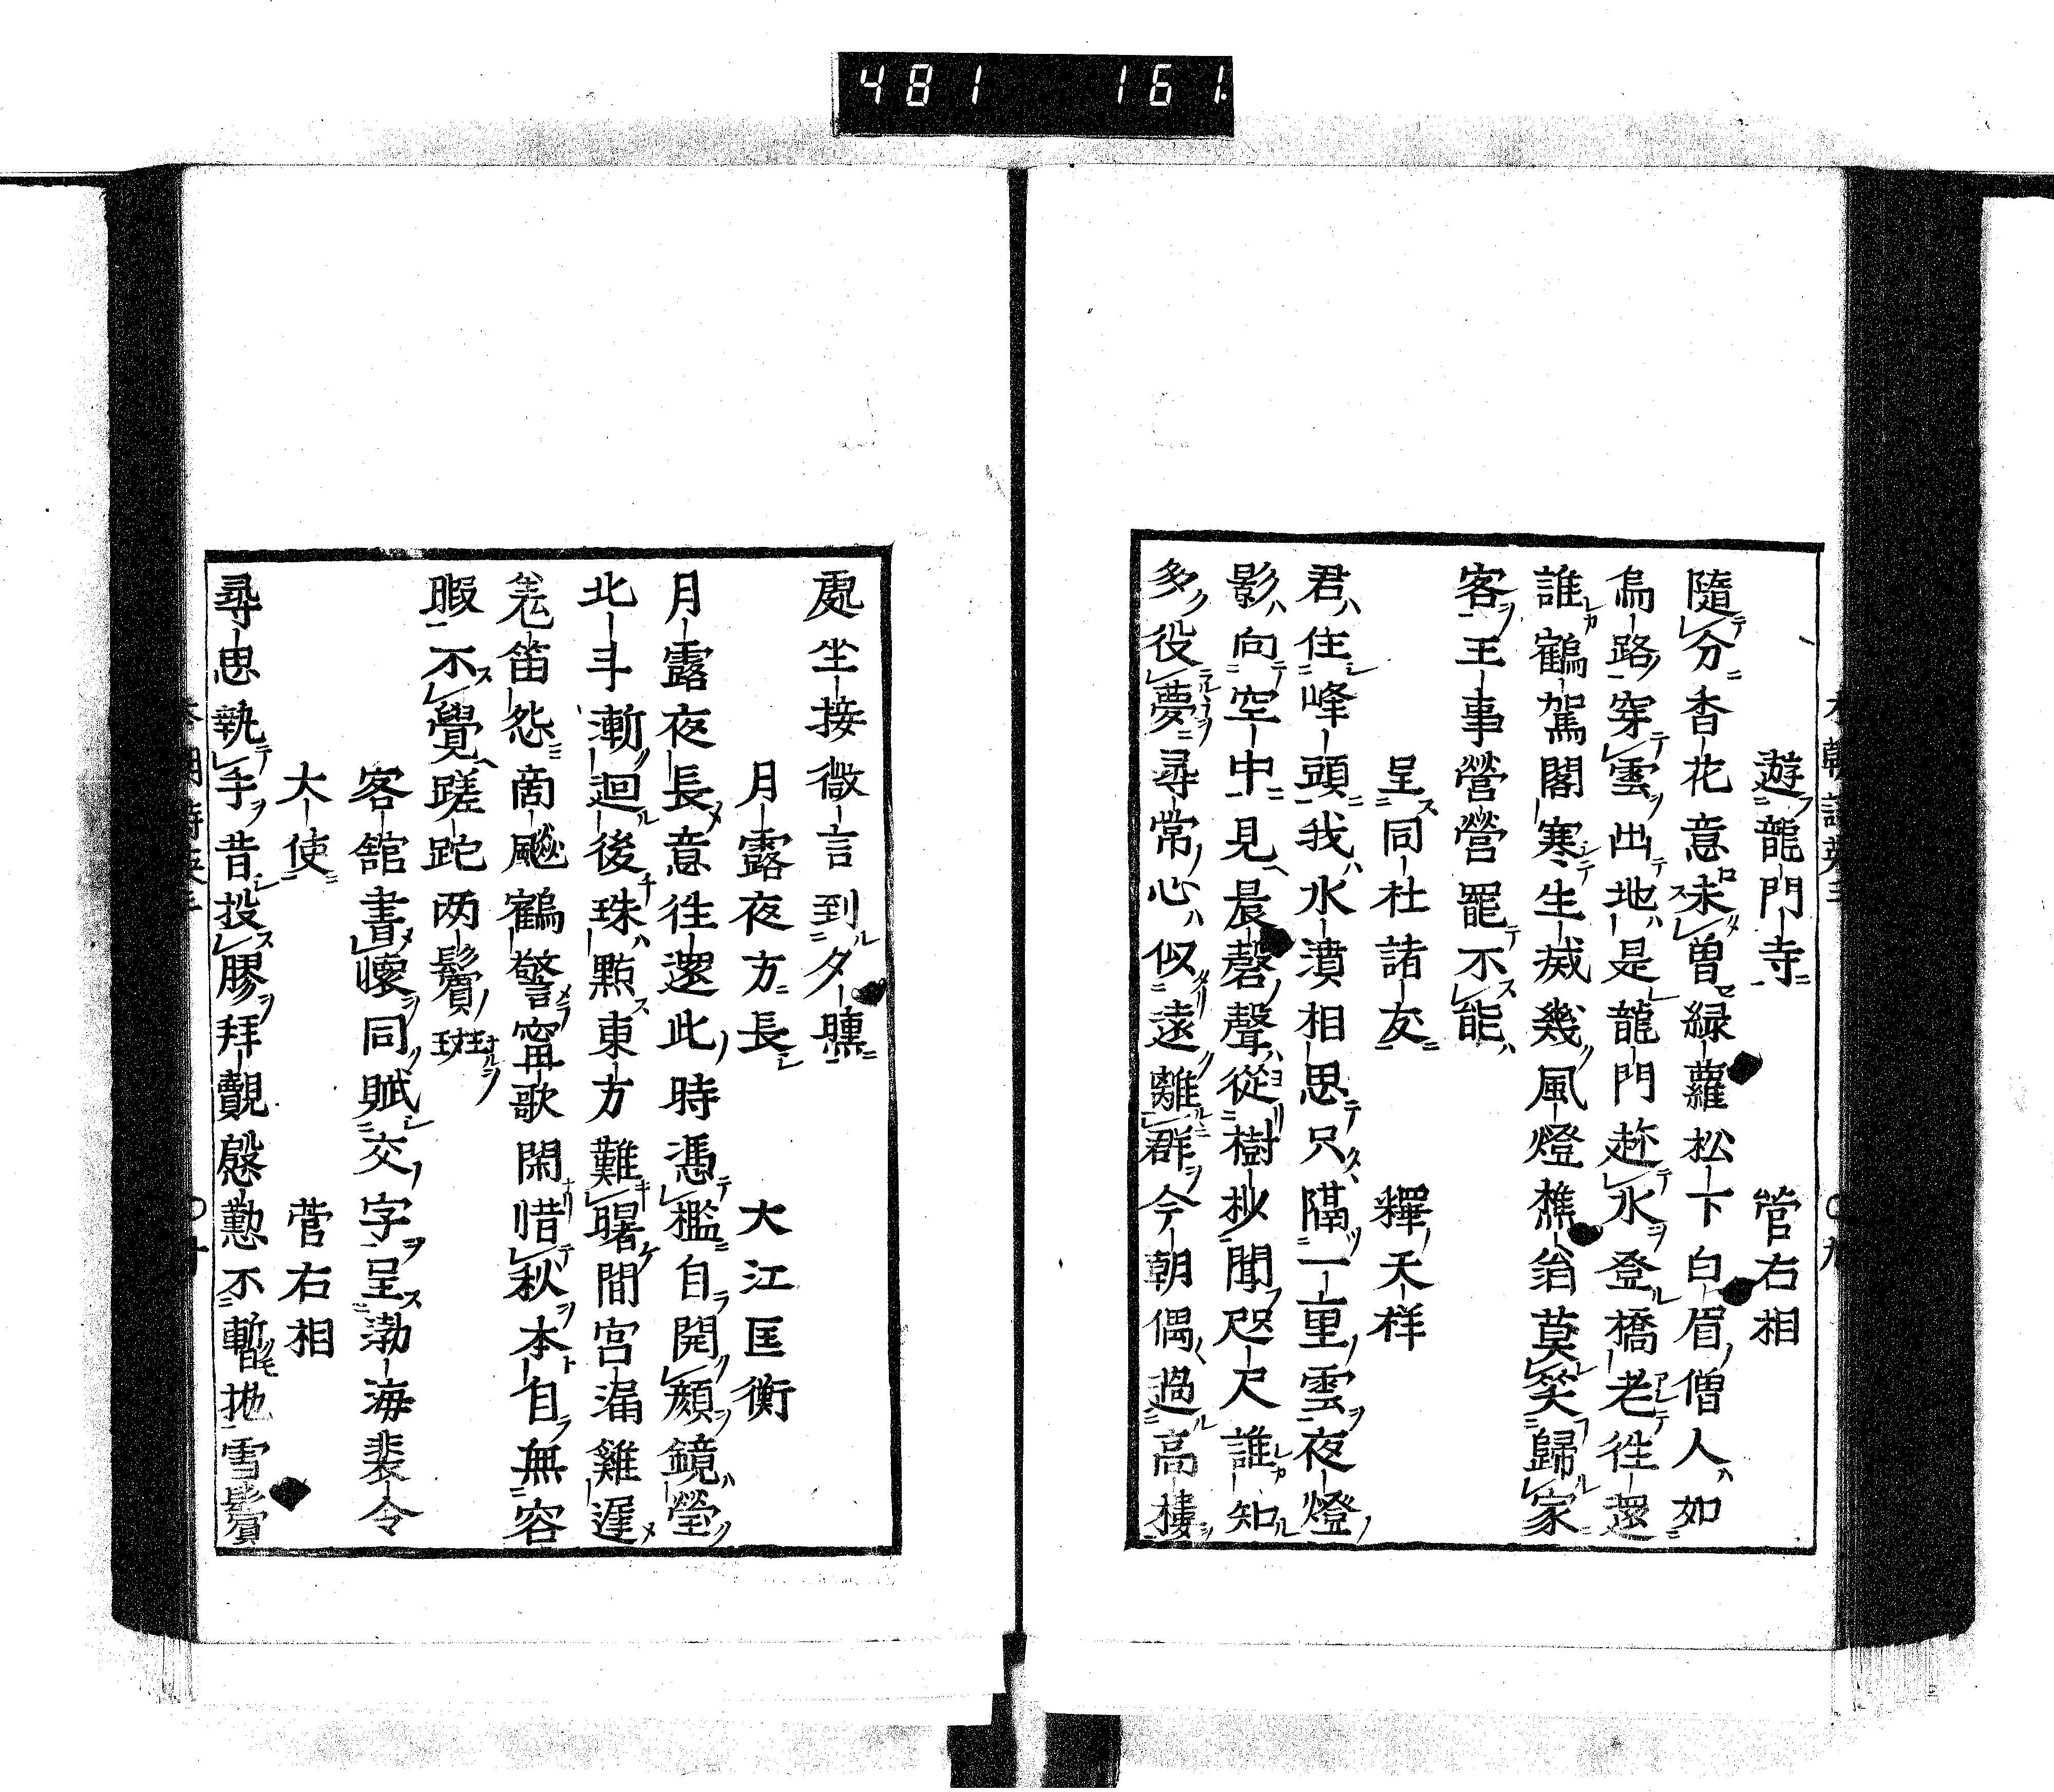 481 161
遊龍門寺 菅右相
隨分香花意未曾緑蘿松下白眉僧人如
鳥路穿雲出地是龍門趂水登橋老往還
誰鶴駕閣寒生滅幾風燈樵翁莫笑歸家
客王事營營罷不能
呈同杜諸友 釋天祥
君住峰頭我水濆相思只隔一里雲夜燈
影向空中見晨磬聲從樹杪聞咫尺誰知
多役夢尋常心似遠離群今朝偶過高樓
處坐接微言到夕曛
月露夜方長 大江匡衡
月露夜長意往還此時憑檻自開顔鏡瑩
北斗漸迴後珠點東方難曙間宮漏雞遲
羌笛怨商飈鶴警甯歌閑惜秋本自無容
暇不覺蹉跎两鬢斑
客舘書懷同賦交字呈渤海裴令
大使 菅右相
尋思執手昔投膠拜覿慇懃不暫抛雪鬢